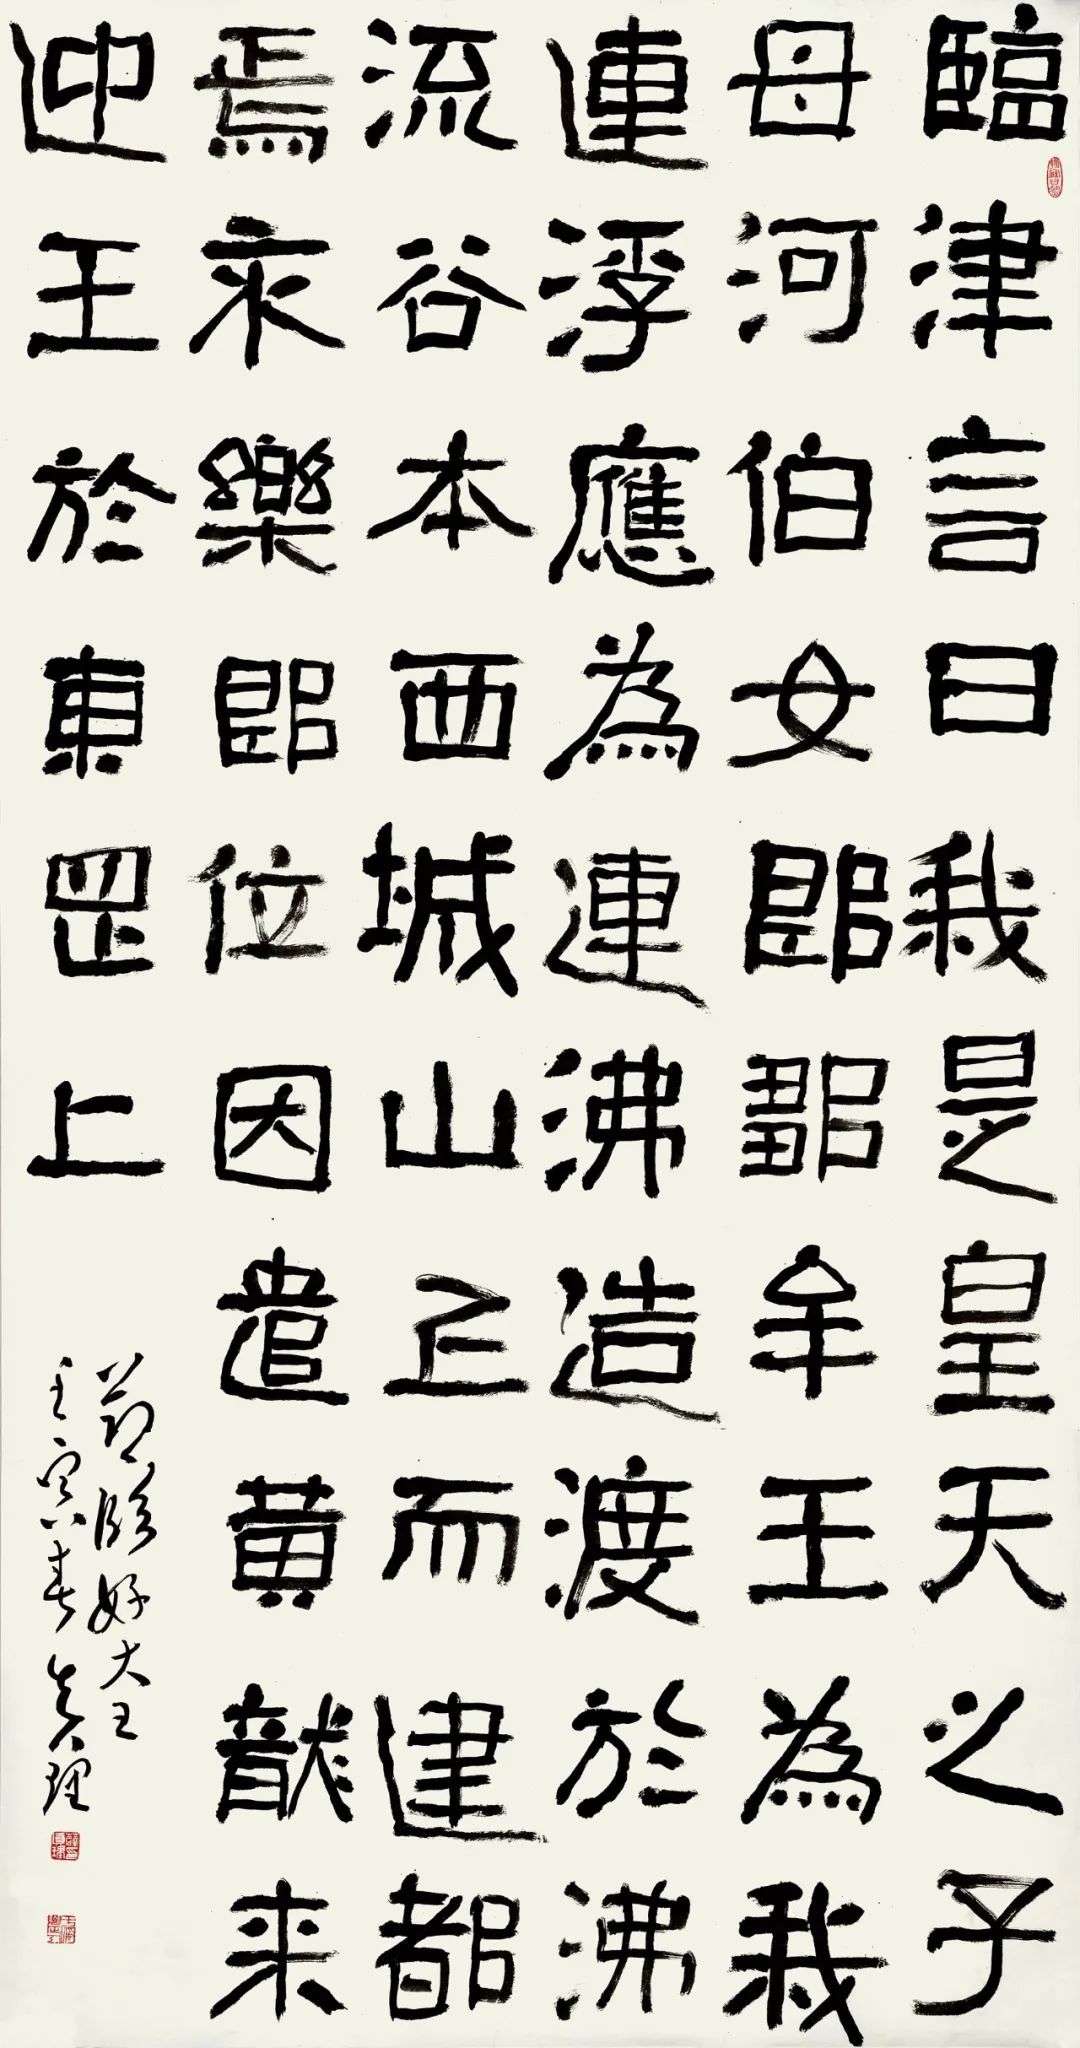 臨津言曰我是皇天之子
母河伯女郎鄒牟王為我
連浮應為連沸造渡於沸
流谷本西城山上而建都
焉永樂郎位因遣黄龍来
迎王於東罡上
節臨好大王
壬寅春真理